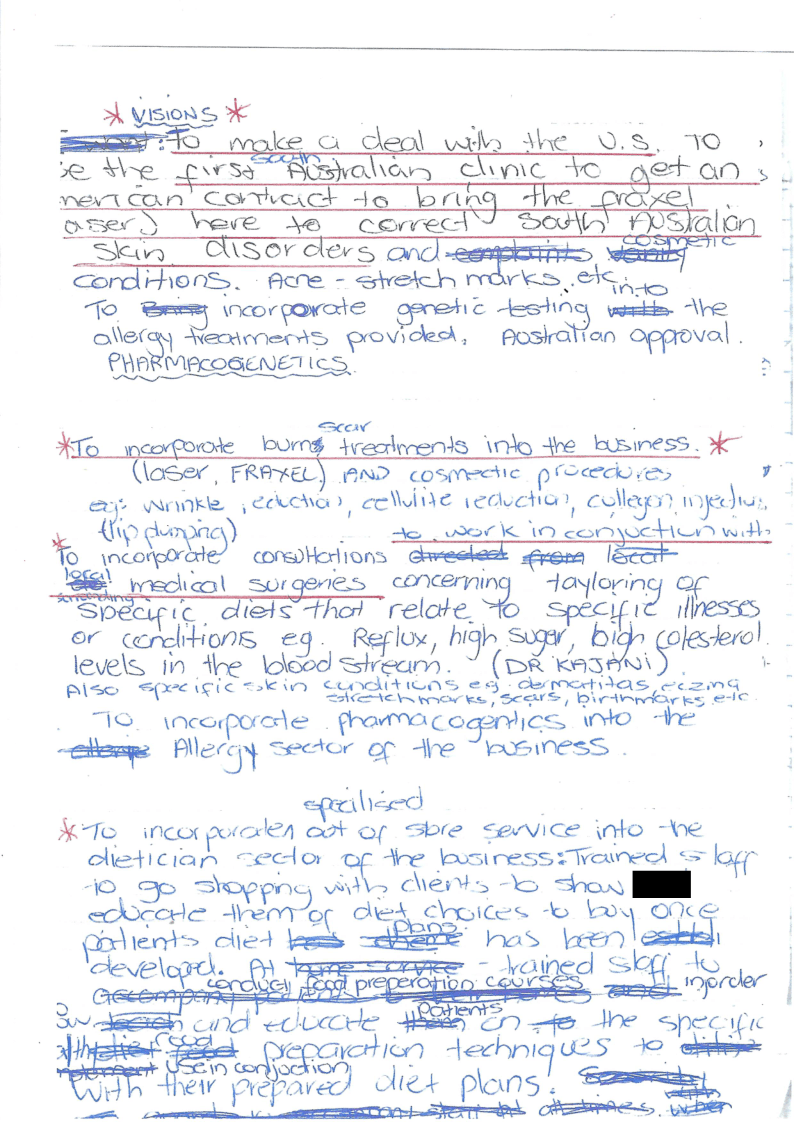 * VISIONS *
: To make a deal with the U.S. TO
be the first south Australian clinic to get an
merican contract to bring the fraxel
aser) here to correct South Australian
skin disorders and complaints vanity cosmetic
conditions. Acne - stretch marks, etc.
To Bring incorporate genetic testing with into the
allergy treatments provided. Australian approval.
PHARMACOGENETICS
scar
*To incorporate burns treatments into the business. *
(laser, FRAXEL) AND cosmectic procedures
eg: wrinkle reduction, cellulite reduction, collegen injections
(lip plumping) to work in conjuction with
*To incorporate consultations directed from local
local medical surgeries concerning tayloring of
specific diets that relate to specific illnesses
or conditions eg. Reflux, high sugar, high colesterol
levels in the blood stream. (DR KAJANI)
Also specific skin conditions eg. dermatitas, eczing
stretchmarks, scars, birthmarks, etc.
To incorporate pharmacogentics into the
allergy Allergy sector of the business.
specilised
* To incorporate out of store service into the
dietician sector of the business: Trained staff
to go shopping with clients to show
educate them of diet choices to buy once
plans
patients diet has been establi
developed. At home service - trained staff to
conduct food preparation courses
accompany and inorder
patients
teach and educate them on to the specific
food
preparation techniques to
use in conjuction
with their prepared diet plans.
with
staff at all times. when